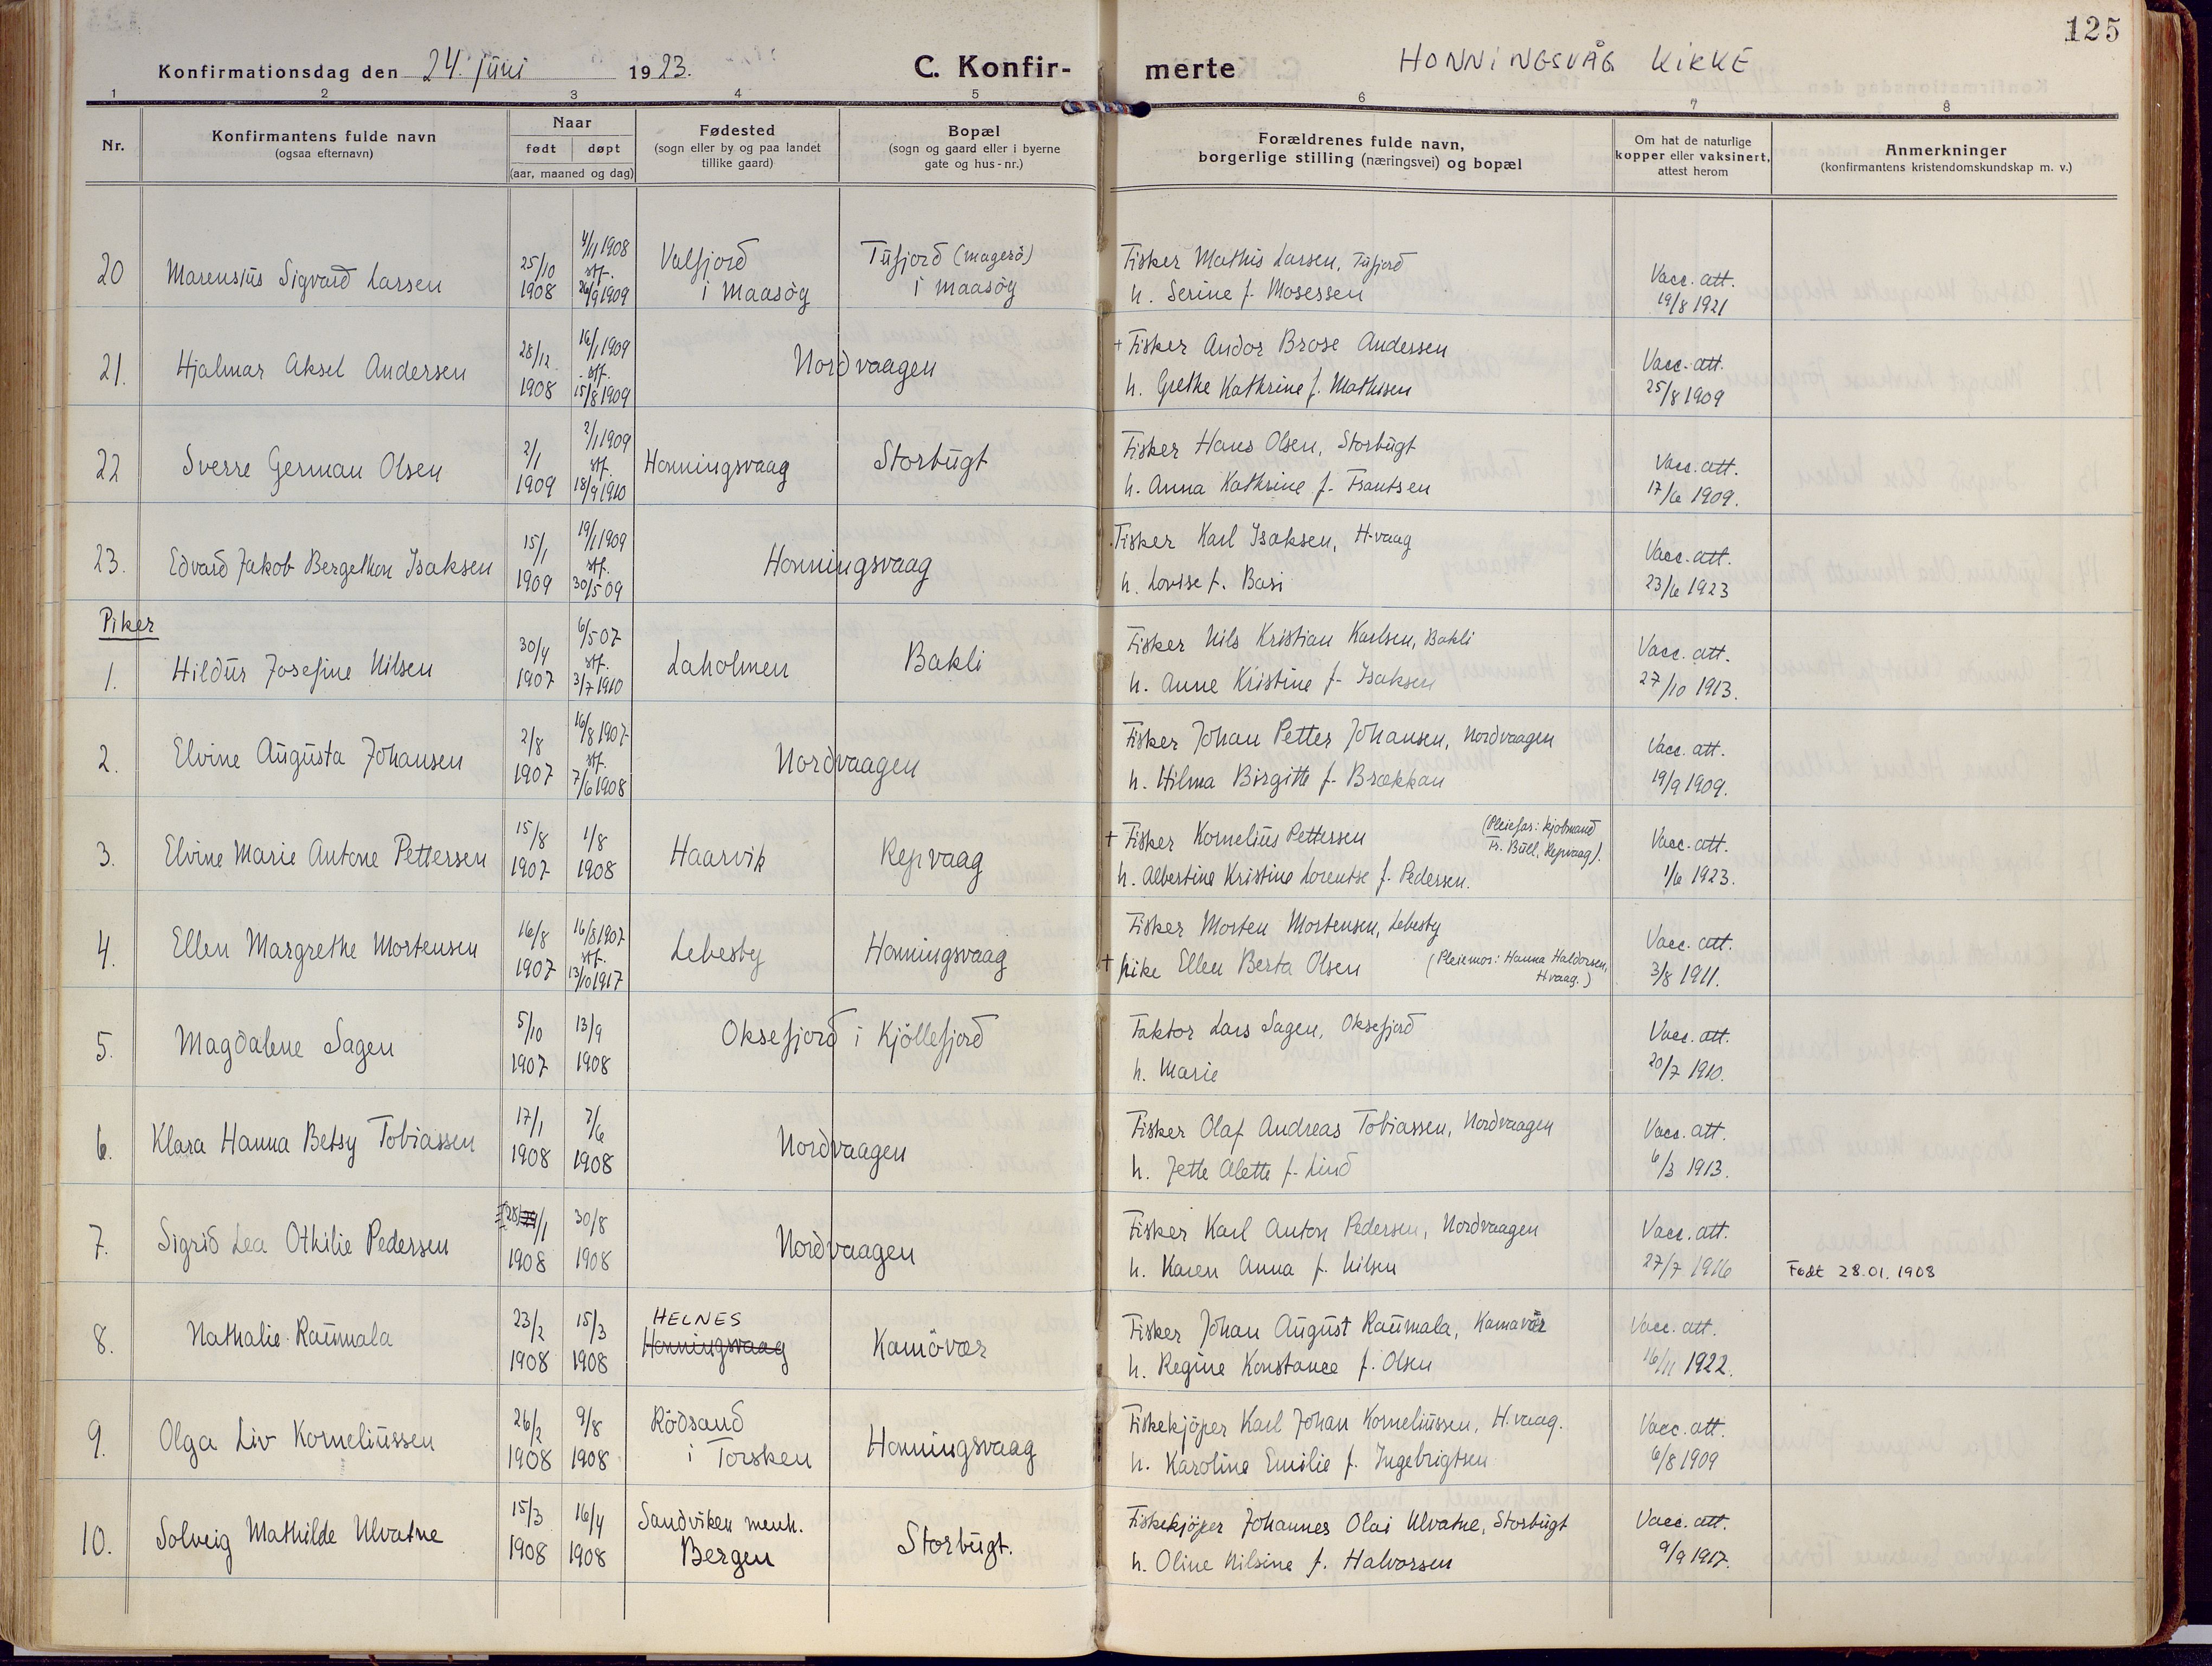 125
Konfirmationsdag den 24. juni 1923.
C. Konfir-
merte
HONNINGSVÅG KIRKE
1 2 3 4 5 6 7 8
Nr.
Konfirmantens fulde navn
(ogsaa efternavn)
Naar
født døpt
(aar, maaned og dag)
Fødested
(sogn eller by og paa landet
tillike gaard)
Bopæl
(sogn og gaard eller i byerne
gate og hus-nr.)
Forældrenes fulde navn,
borgerlige stilling (næringsvei) og bopæl
Om hat de naturlige
kopper eller vaksinert,
attest herom
Anmerkninger
(konfirmantens kristendomskundskap m. v.)
20 Marensius Sigvard Larsen
25/10 1908
4/11 1908
stf.
26/9 1909
Valfjord
i Maasøy
Tufjord (Magerø)
i Maasøy
Fisker Mathis Larsen, Tufjord
h. Serine f. Mosessen
Vacc. att.
19/8 1921
21. Hjalmar Aksel Andersen
28/12 1908
16/1 1909
stf.
15/8 1909
Nordvaagen
+ Fisker Andor Brose Andersen
h. Grethe Kathrine f. Mathisen
Vacc. att.
25/8 1909
22 Sverre German Olsen
2/1 1909
2/1 1909
stf.
18/9 1910
Honningsvaag
Storbugt
Fisker Hans Olsen, Storbugt
h. Anna Kathrine f. Frantsen
Vacc. att.
17/6 1909.
23. Edvard Jakob Bergethon Isaksen
15/1 1909
19/1 1909
stf.
30/5 09
Honningsvaag
Fisker Karl Isaksen, H-vaag
h. Lovise f. Basi
Vacc. att.
23/6 1923
Piker
1. Hildur Josefine Nilsen
30/4 1907
6/5 07
stf.
3/7 1910
Laholmen
Bakli
Fisker Nils Kristian Karlsen, Bakli
h. Anne Kristine f. Isaksen
Vacc. att.
27/10 1913.
2. Elvine Augusta Johansen
2/8 1907
16/8 1907
stf.
7/6 1908
Nordvaagen
Fisker Johan Petter Johansen, Nordvaagen
h. Hilma Birgitte f. Brækkan
Vacc. att.
19/9 1909.
3. Elvine Marie Antone Pettersen
15/8 1907
1/8 1908
Haarvik
Repvaag
+ Fisker Kornelius Pettersen
(Pleiefar: kjøbmand
Fr. Bull, Repvaag).
h. Albertine Kristine Lorentse f. Pedersen.
Vacc. att.
1/6 1923.
4. Ellen Margrethe Mortensen
16/8 1907
16/8 1907
stf.
13/10 1917
Lebesby
Honningsvaag
Fisker Morten Mortensen, Lebesby
+ pike Ellen Berta Olsen
(Pleiemor: Hanna Haldorsen,
H.vaag.)
Vacc. att.
3/8 1911.
5. Magdalene Sagen
5/10 1907
13/9 1908
Oksefjord i Kjøllefjord
Faktor Lars Sagen, Oksefjord
h. Marie
Vacc. att.
20/7 1910.
6. Klara Hanna Betsy Tobiassen
17/1 1908
7/6 1908
Nordvaagen
Fisker Olaf Andreas Tobiassen, Nordvaagen
h. Jette Alette f. Lind
Vacc. att.
6/3 1913.
7. Sigrid Lea Othilie Pedersen
28/1 1908
30/8 1908
Nordvaagen
Fisker Karl Anton Pedersen, Nordvaagen
h. Karen Anna f. Nilsen
Vacc. att.
27/7 1916
Født 28.01.1908
8. Nathalie Raumala
23/2 1908
15/3 1908
HELNES
Honningsvaag
Kamøvær
Fisker Johan August Raumala, Kamavær
h. Regine Konstance f. Olsen
Vacc. att.
16/11 1922.
9. Olga Liv Korneliussen
26/2 1908
9/8 1908
Rødsand
i Torsken
Honningsvaag
Fiskekjøper Karl Johan Korneliussen, H.vaag.
h. Karoline Emilie f. Ingebrigtsen
Vacc. att.
6/8 1909
10. Solveig Mathilde Ulvatne
15/3 1908
16/4 1908
Sandviken menh.
Bergen
Storbugt.
Fiskekjøper Johannes Olai Ulvatne, Storbugt
h. Oline Nilsine f. Halvorsen
Vacc. att.
9/9 1917.